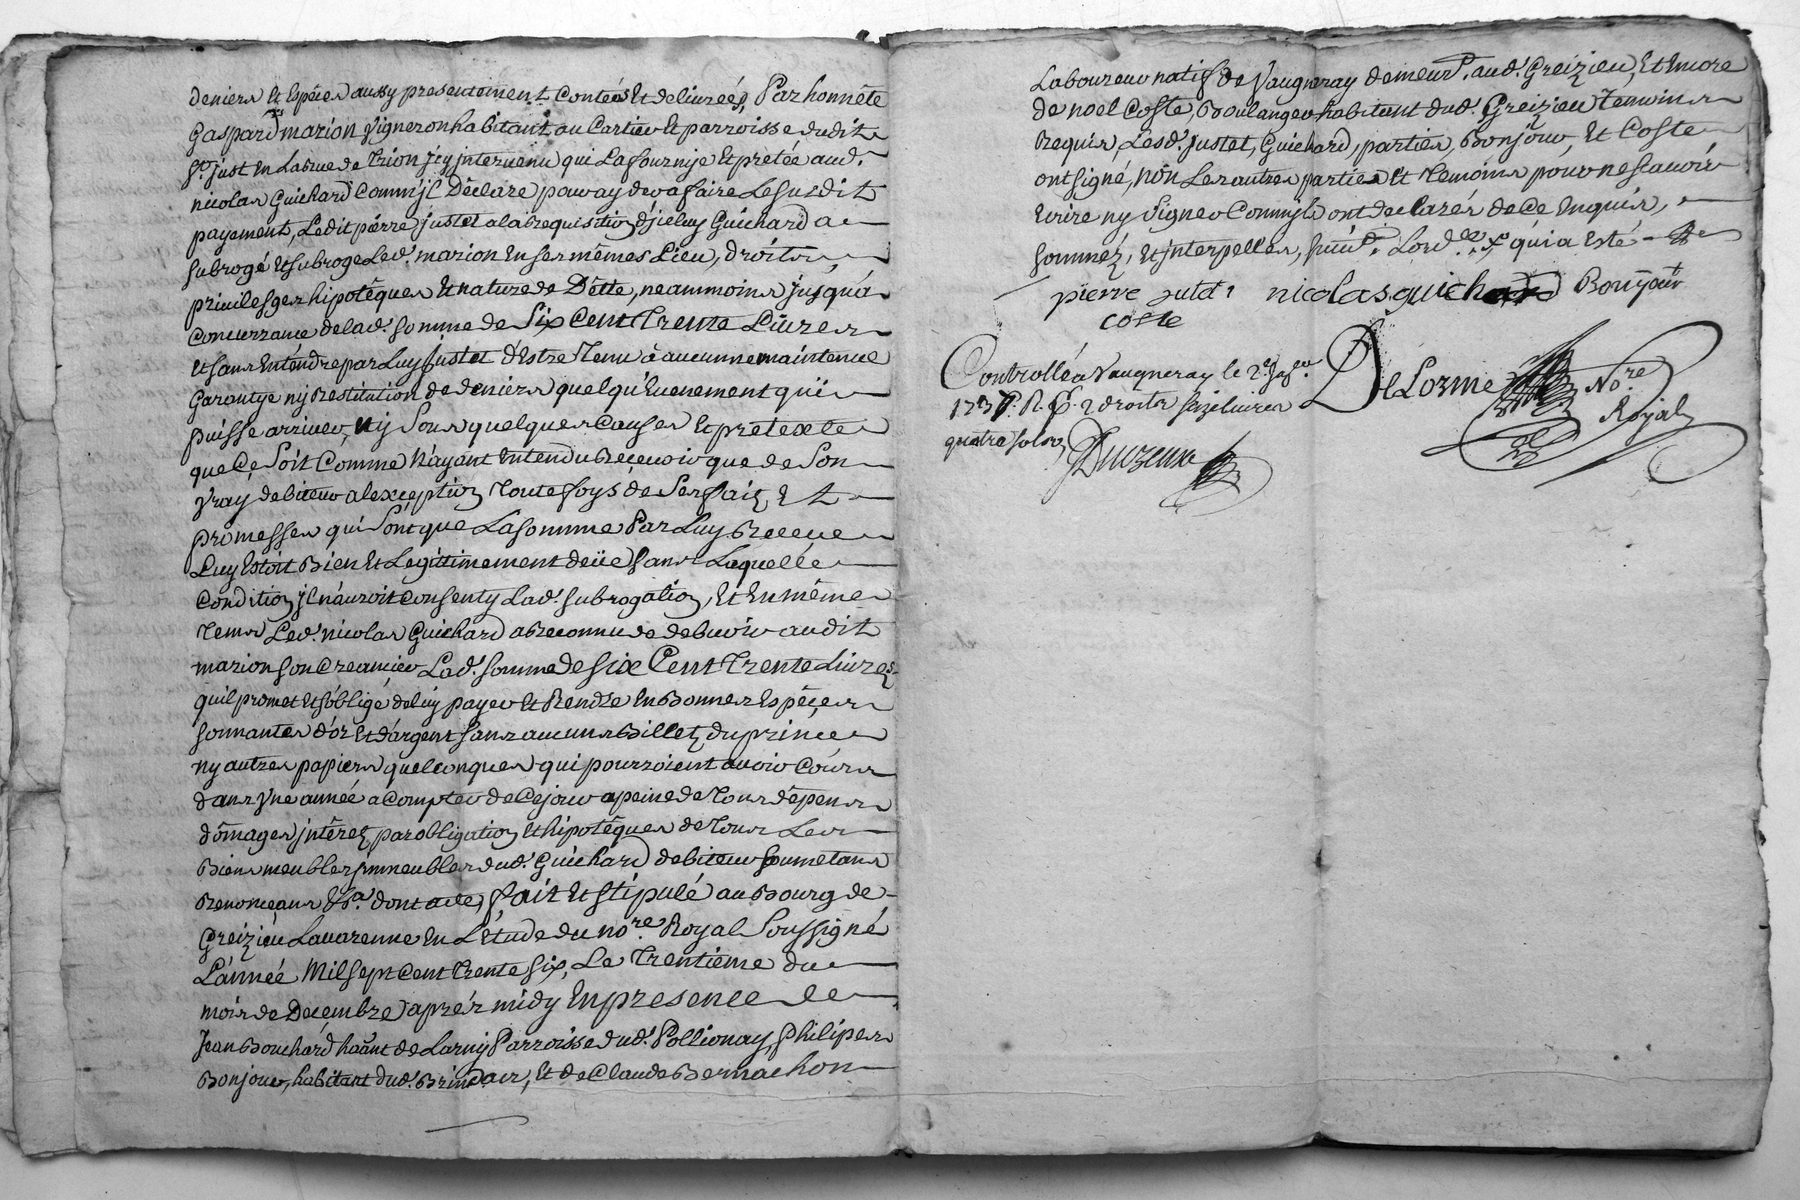 deniers Et Espéces aussy presentement Contées Et delivrées, Par honnéte
Gaspard marion Vigneron habitant au Cartier Et parroisse dudit
St. just En La rue de Trion jcy jntervenu qui La fournije Et pretée aud.
nicolas Guichard Comm'jl Déclare pour ay devoir faire Le susdit
payement, Ledit pierre justet a la Requisition d'jceluy Guichard a
subrogé Et subroge Led. marion En ses mêmes Lieu, Droits,
privilesges hipotéques Et nature de Dêtte, neammoins jusqu'a
Concurrance de lad. somme de Six Cent Trente Livres
Et sans Entendre par Luy justet d'Estre Tenu à aucunne maintenüe
Garantye ny Restitution de deniers quelqu'Evenement qui
puisse arriver, ny Sous quelques Causes Et prétexte
que Ce Soit Comme N'ayant Entendu Reçevoir que de Son
Vray debiteur a lexception Toutefoys de Ses faits Et
promesses qui Sont que La somme Par Luy Receue
Luy Estoit Bien Et Legittimement deüe sans Laquelle
Condition jl n'auroit Consenty Lad. subrogation, Et En même
Tems Led. nicolas Guichard a Reconnu de debvoir audit
marion son Creancier Lad. somme de six Cent Trente Livres
quil promet Et s'oblige de luy payer Et Rendre En Bonnes Espéçes
sonnantes d'or Et d'argent sans aucuns Billets du prince
ny autres papiers quelconques qui pourroient avoir Cours
dans Vne année a Compter de Ce jour a peine de Tous dépens
dômages jntérets par obligation Et hipotéques de Tous Les
Biens meubles jmmeubles dud. Guichard debiteur soumetans
Renonçeans &a. dont acte, fait Et Stipulé au Bourg de
Greizieu Lavarenne En L'Etude du nore Royal Soussigné
L'année Mil sept Cent Trente six, Le Trentième du
mois de Decembre après midy En presence de
Jean Bouchard haânt de Larny Parroisse dud. Pollionay, Philipes
Bonjour, habitant dud. Brindas, Et de Claude Bernachon
Laboureur natif de Vaugneray demeurt. aud. Greizieu, Et Encore
de noel Coste, Boulanger habitant dud. Greizieu Temoins
Requis, Lesd. justet, Guichard, parties, Bonjour, Et Coste
ont signé, non Les autres parties Et Temoins pour ne scavoir
Ecrire ny Signer Comm'jls ont declarés de Ce Enquis,
sommés, Et jnterpellés, suivt. Lord.ce qui a Esté
pierre jutet nicolas guichard Bonjour
coste
Controllé a Vaugneray le 2e. janer.
1737 R. 2 droits seize livres
quatre sols
DeLorme Nore
Royal